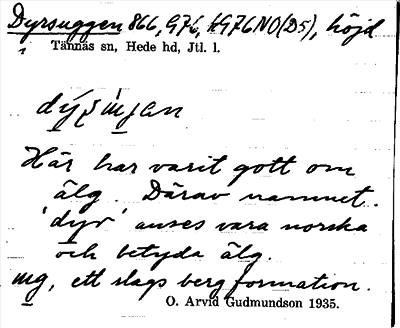 Dyrsuggen 866, G76, HG76NO(D5), höjd
i Tännäs sn, Hede hd, Jtl. l.
Här har varit gott om
älg. Därav namnet.
'dyr' anses vara norska
och betyda älg.
ug, ett slags bergformation.
O. Arvid Gudmundson 1935.